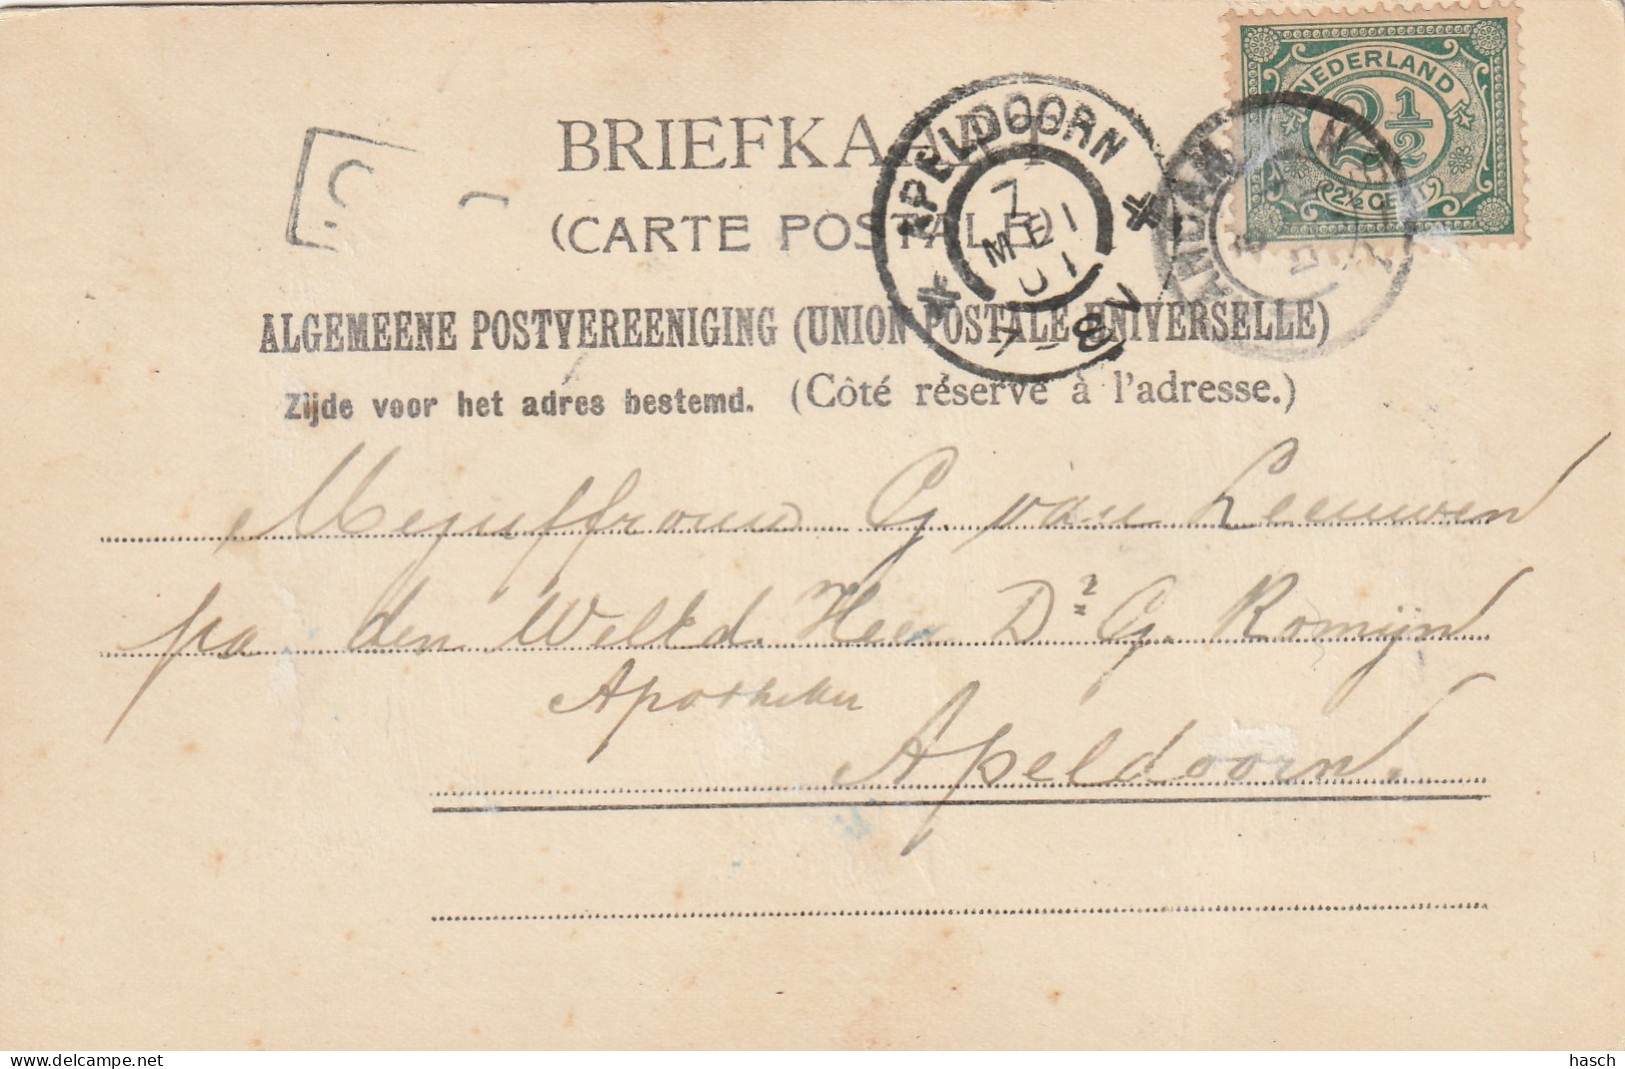 NEDERLAND
2 1/2
2½ CENT
BRIEFKAART
(CARTE POSTALE)
APELDOORN
7
MEI
01
7-8V
ALGEMEENE POSTVEREENIGING (UNION POSTALE UNIVERSELLE)
Zijde voor het adres bestemd. (Côté réservé à l'adresse.)
Mejuffrouw G. van Leeuwen
pa den WelEd. Heer Dr G. Romijn
Apotheker
Apeldoorn.
hasch